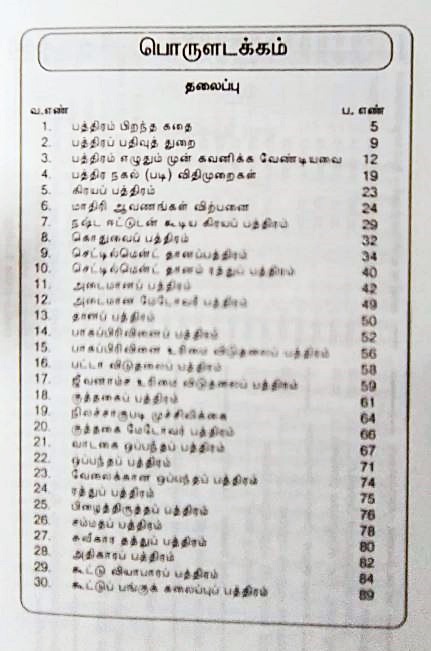 பொருளடக்கம்
தலைப்பு
வ.எண் ப. எண்
1. பத்திரம் பிறந்த கதை 5
2. பத்திரப் பதிவுத் துறை 9
3. பத்திரம் எழுதும் முன் கவனிக்க வேண்டியவை 12
4. பத்திர நகல் (படி) விதிமுறைகள் 19
5. கிரயப் பத்திரம் 23
6. மாதிரி ஆவணங்கள் விற்பனை 24
7. நஷ்ட ஈட்டுடன் கூடிய கிரயப் பத்திரம் 29
8. கொதுவைப் பத்திரம் 32
9. செட்டில்மென்ட் தானப்பத்திரம் 34
10. செட்டில்மென்ட் தானம் ரத்துப் பத்திரம் 40
11. அடைமானப் பத்திரம் 42
12. அடைமான மேடோவர் பத்திரம் 49
13. தானப் பத்திரம் 50
14. பாகப்பிரிவினைப் பத்திரம் 52
15. பாகப்பிரிவினை உரிமை விடுதலைப் பத்திரம் 56
16. பட்டா விடுதலைப் பத்திரம் 58
17. ஜீவனாம்ச உரிமை விடுதலைப் பத்திரம் 59
18. குத்தகைப் பத்திரம் 61
19. நிலச்சாகுபடி முச்சிலிக்கை 64
20. குத்தகை மேடோவர் பத்திரம் 66
21. வாடகை ஒப்பந்தப் பத்திரம் 67
22. ஒப்பந்தப் பத்திரம் 71
23. வேலைக்கான ஒப்பந்தப் பத்திரம் 74
24. ரத்துப் பத்திரம் 75
25. பிழைத்திருத்தப் பத்திரம் 76
26. சம்மதப் பத்திரம் 78
27. சுவீகார தத்துப் பத்திரம் 80
28. அதிகாரப் பத்திரம் 82
29. கூட்டு வியாபாரப் பத்திரம் 84
30. கூட்டுப் பங்குக் கலைப்புப் பத்திரம் 89